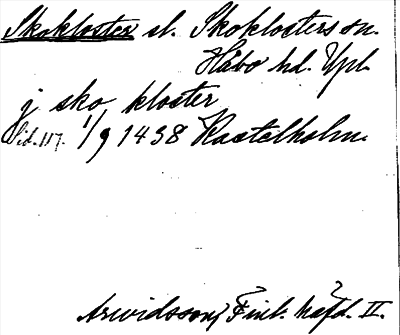 Skokloster sl. Skoklosters sn.
Håbo hd. Upl.
j sko kloster
Sid. 117. 1/9 1438 Kastelholm.
Arwidsson, Finl. häfd. II.